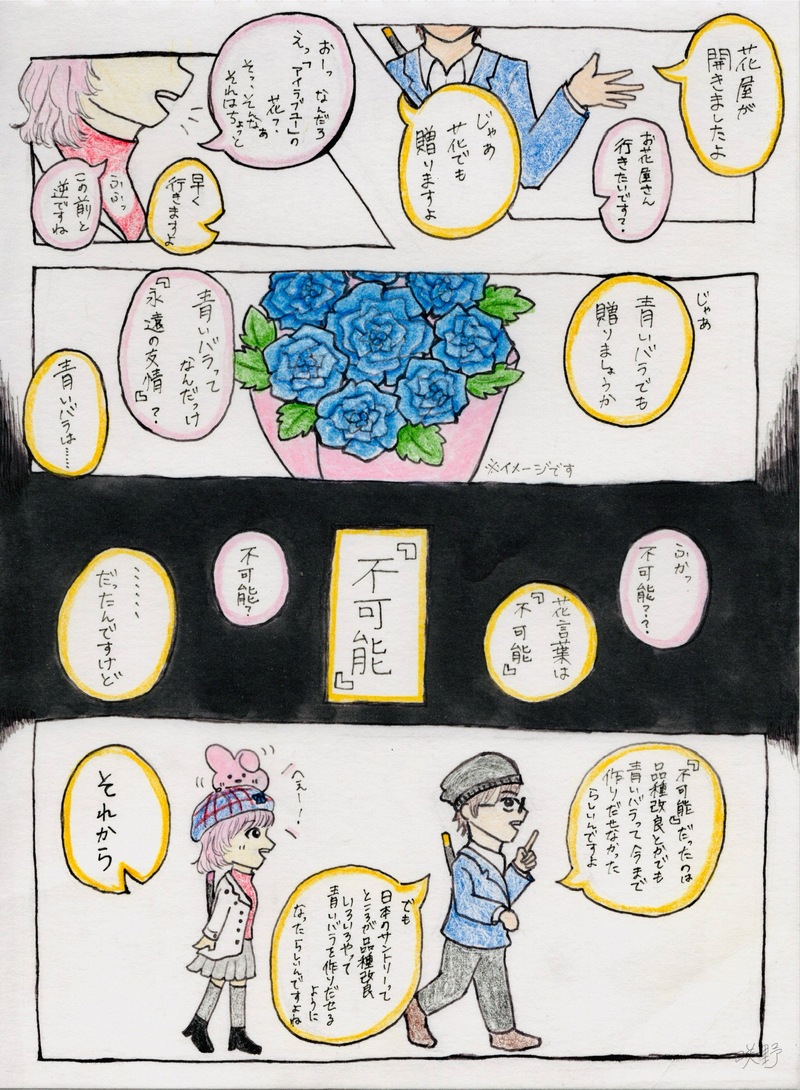 花屋が
開きましたよ
お花屋さん
行きたいです?
じゃあ
花でも
贈りますよ
おーっ なんだろ
えっ「アイラブユー」の
花?
そっ、そんなぁ
それはちょっと
早く
行きますよ
ふふっ
この前と
逆ですね
じゃあ
青いバラでも
贈りましょうか
※イメージです
青いバラって
なんだっけ
『永遠の友情』?
青いバラは……
ふかっ
不可能??
花言葉は
『不可能』
『不可能』
不可能?
………
だったんですけど
『不可能』だったのは
品種改良とかでも
青いバラって今まで
作りだせなかった
らしいんですよ
へぇー!
でも
日本のサントリーって
ところが品種改良
いろいろやって
青いバラを作りだせる
ように
なったらしいんですよね
それから
咲野